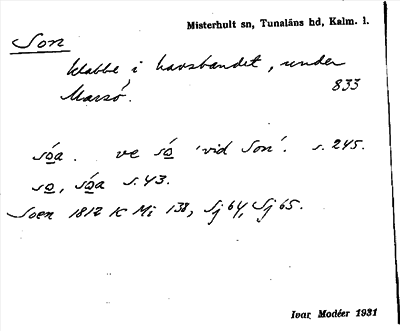 Misterhult sn, Tunaläns hd, Kalm. l.
Son
klabbe i havsbandet, under
Marsö. 833
sóa. ve só 'vid Son'. s. 245.
so, sóa s. 43.
Soen 1812 K Mi 138, Sj 64, Sj 65.
Ivar Modéer 1931